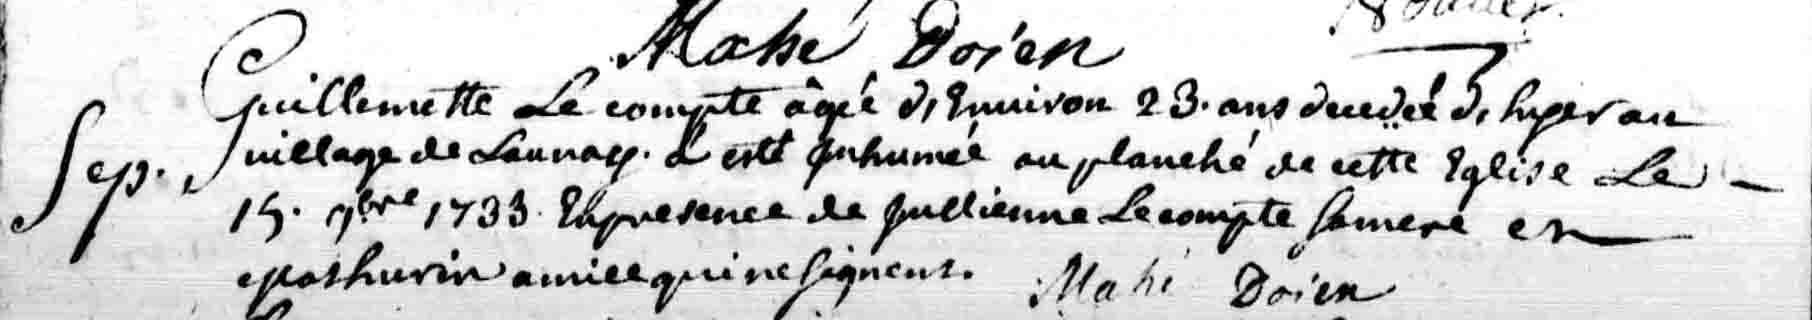 Mahé Doien
Guillemette Le compte âgée d'Enuiron 23. ans decedeé d'hyer au
Sep. uillage de Launay. a esté Inhumée au planché de cette Eglise Le
15. 7bre 1733. En presence de Jullienne Lecompte Samere et
Mathurin amice qui ne Signent. Mahé Doien